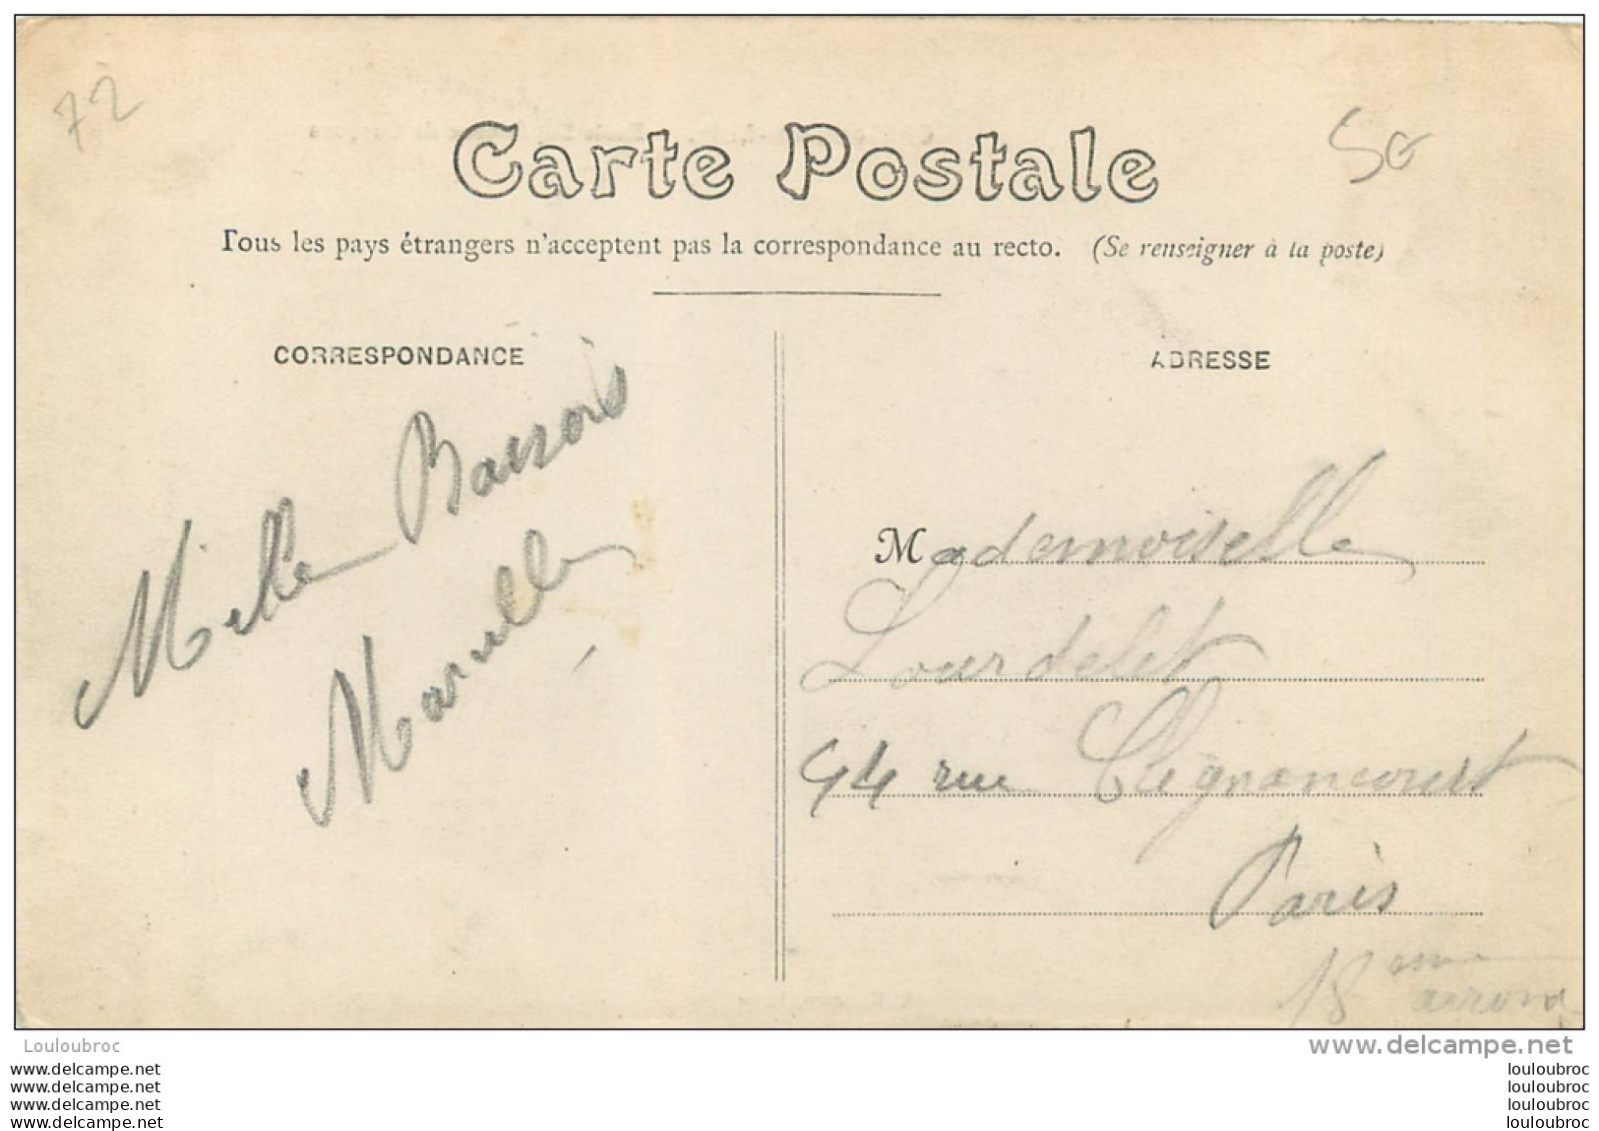 72
50
Carte Postale
Tous les pays étrangers n'acceptent pas la correspondance au recto. (Se renseigner à la poste)
CORRESPONDANCE
Melle Barrois
Marcelle
ADRESSE
Mademoiselle
Lourdelet
94 rue Clignancourt
Paris
18eme
arrond
Louloubroc
www.delcampe.net
www.delcampe.net
www.delcampe.net
www.delcampe.net
www.delcampe.net
louloubroc
louloubroc
louloubroc
louloubroc